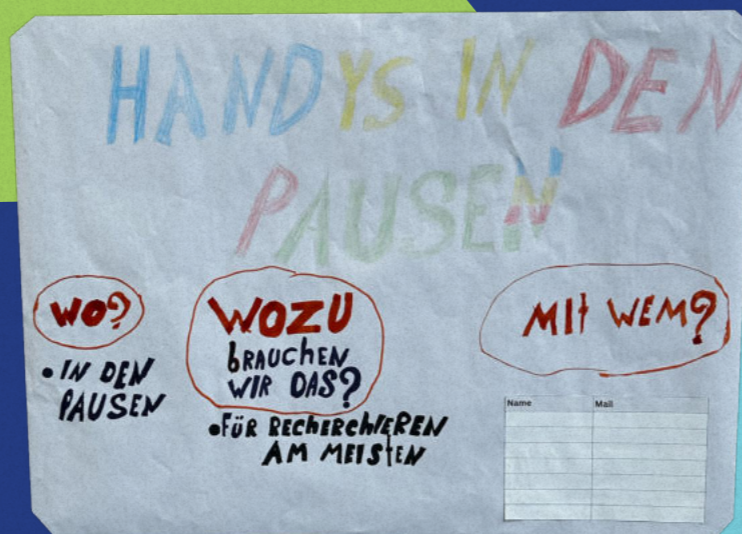 HANDYS IN DEN
PAUSEN
WO?
• IN DEN
PAUSEN
WOZU
bRAUCHEN
WIR DAS?
•FÜR RECHERCHIEREN
AM MEISTEN
MIt WEM?
Name Mail